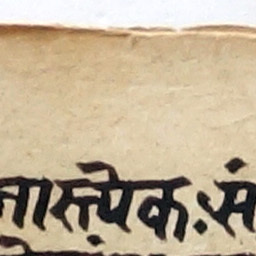 नास्त्येकः सं